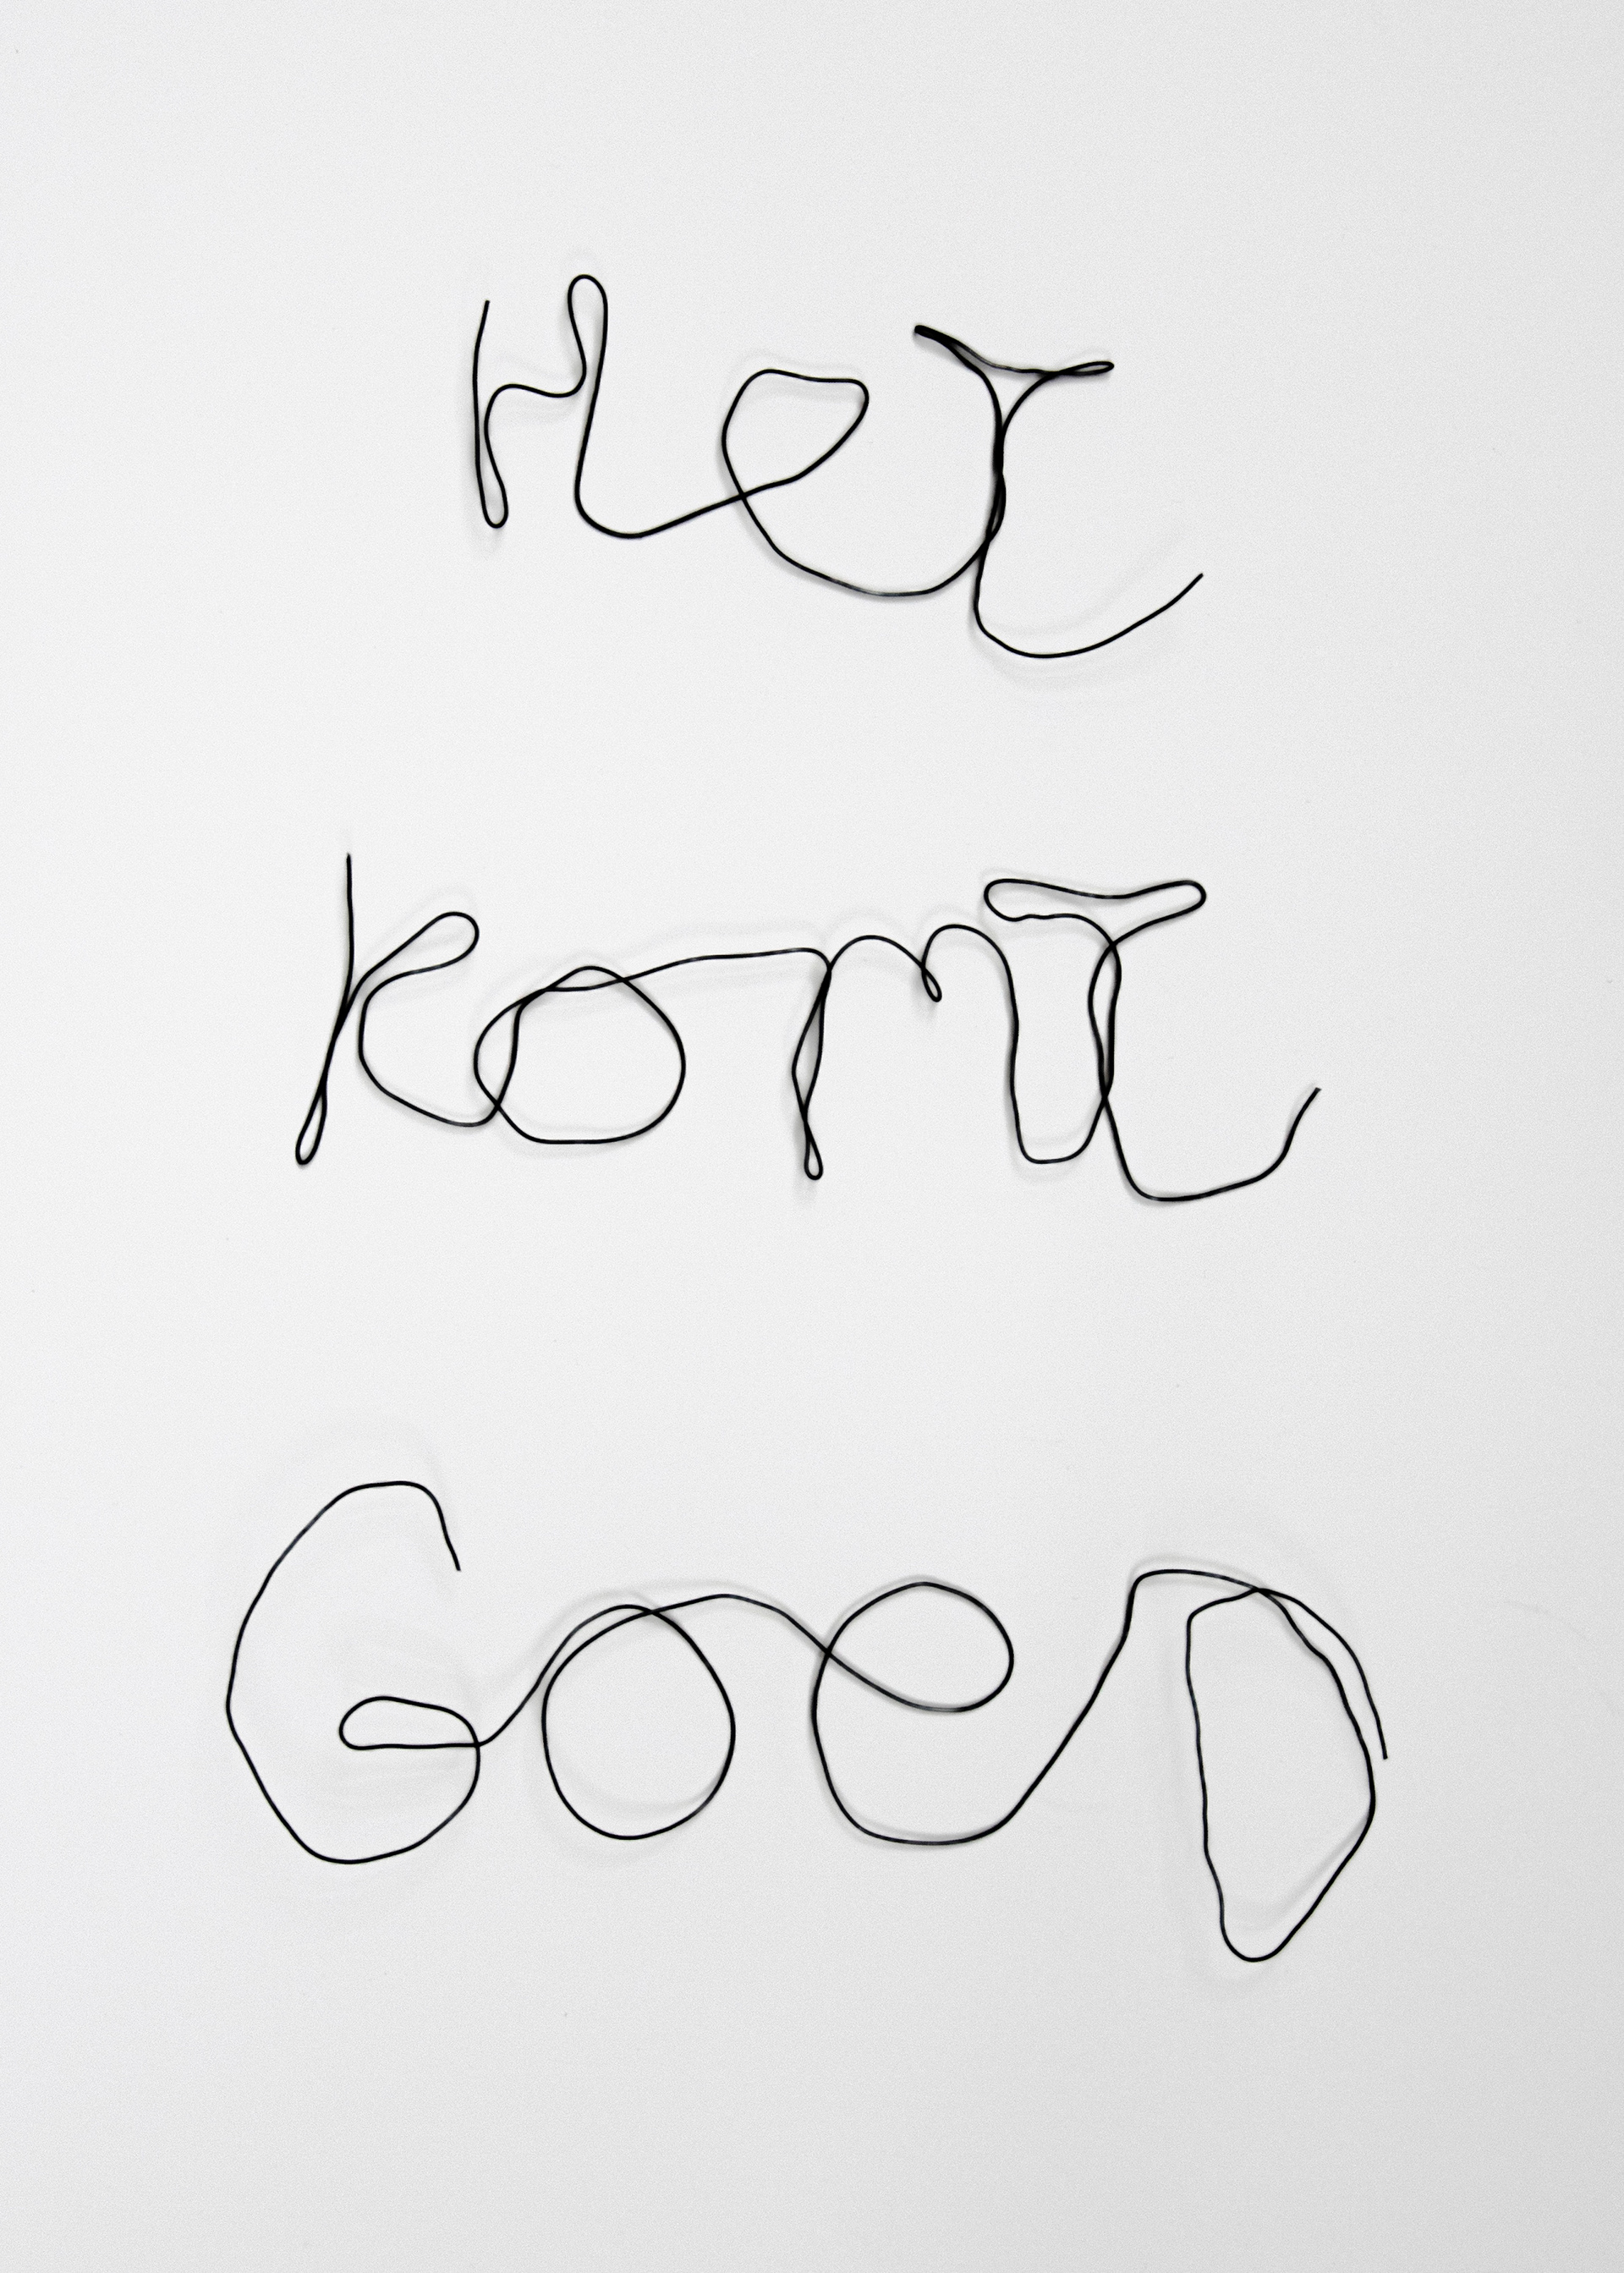 HeT
KomT
GoeD